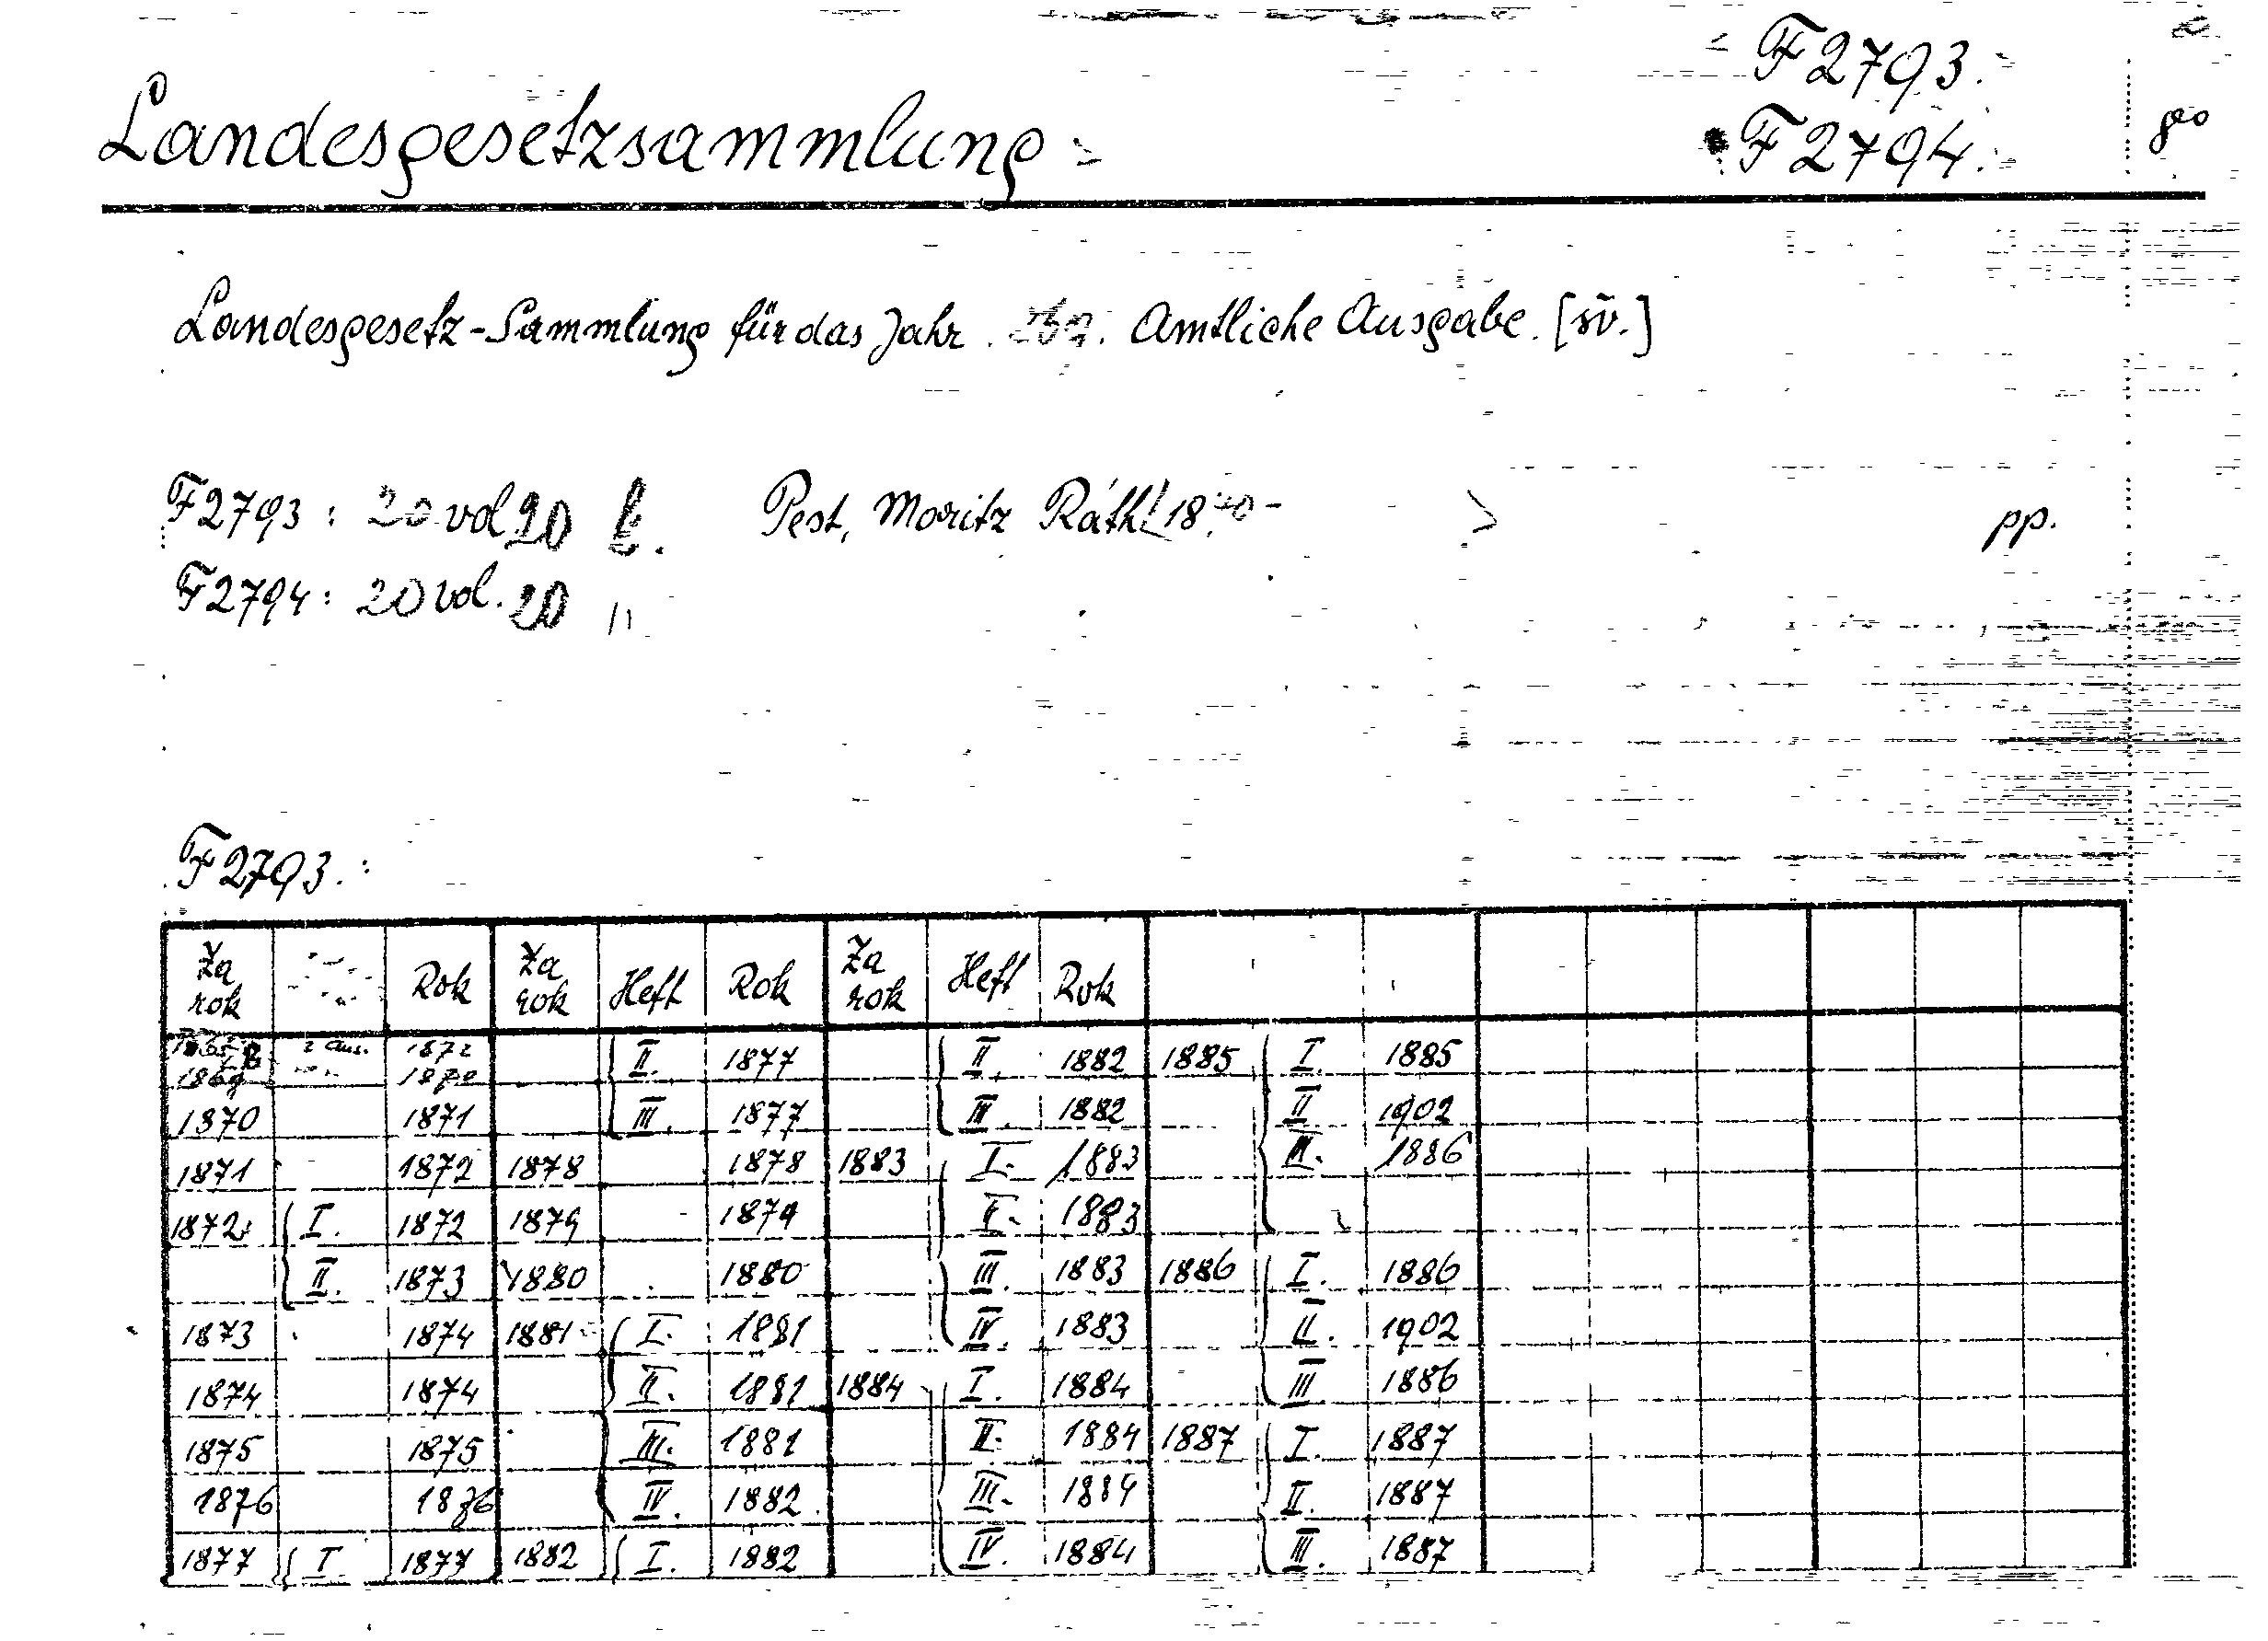 F 2793.
Landesgesetzsammlung
F 2794.
8°
Landesgesetz-Sammlung für das Jahr . Amtliche Ausgabe. [sv.]
F 2793 : 20 vol 20 Pest, Moritz Ráth 18 - pp.
F 2794 : 20 vol. 20 "
F 2793. :
Za rok Rok Za rok Heft Rok Za rok Heft Rok
1872 II. 1877 II. 1882 1885 I. 1885
1869 1870
1870 1871 III. 1877 III. 1882 II. 1902
1871 1872 1878 1878 1883 I. 1883 III. 1886
1872 I. 1872 1879 1879 II. 1883
II. 1873 1880 1880 III. 1883 1886 I. 1886
1873 1874 1881 I. 1881 IV. 1883 II. 1902
1874 1874 II. 1881 1884 I. 1884 III 1886
1875 1875 III. 1881 II. 1884 1887 I. 1887
1876 1876 IV. 1882. III. 1884 II. 1887
1877 I. 1877 1882 I. 1882 IV. 1884 III. 1887